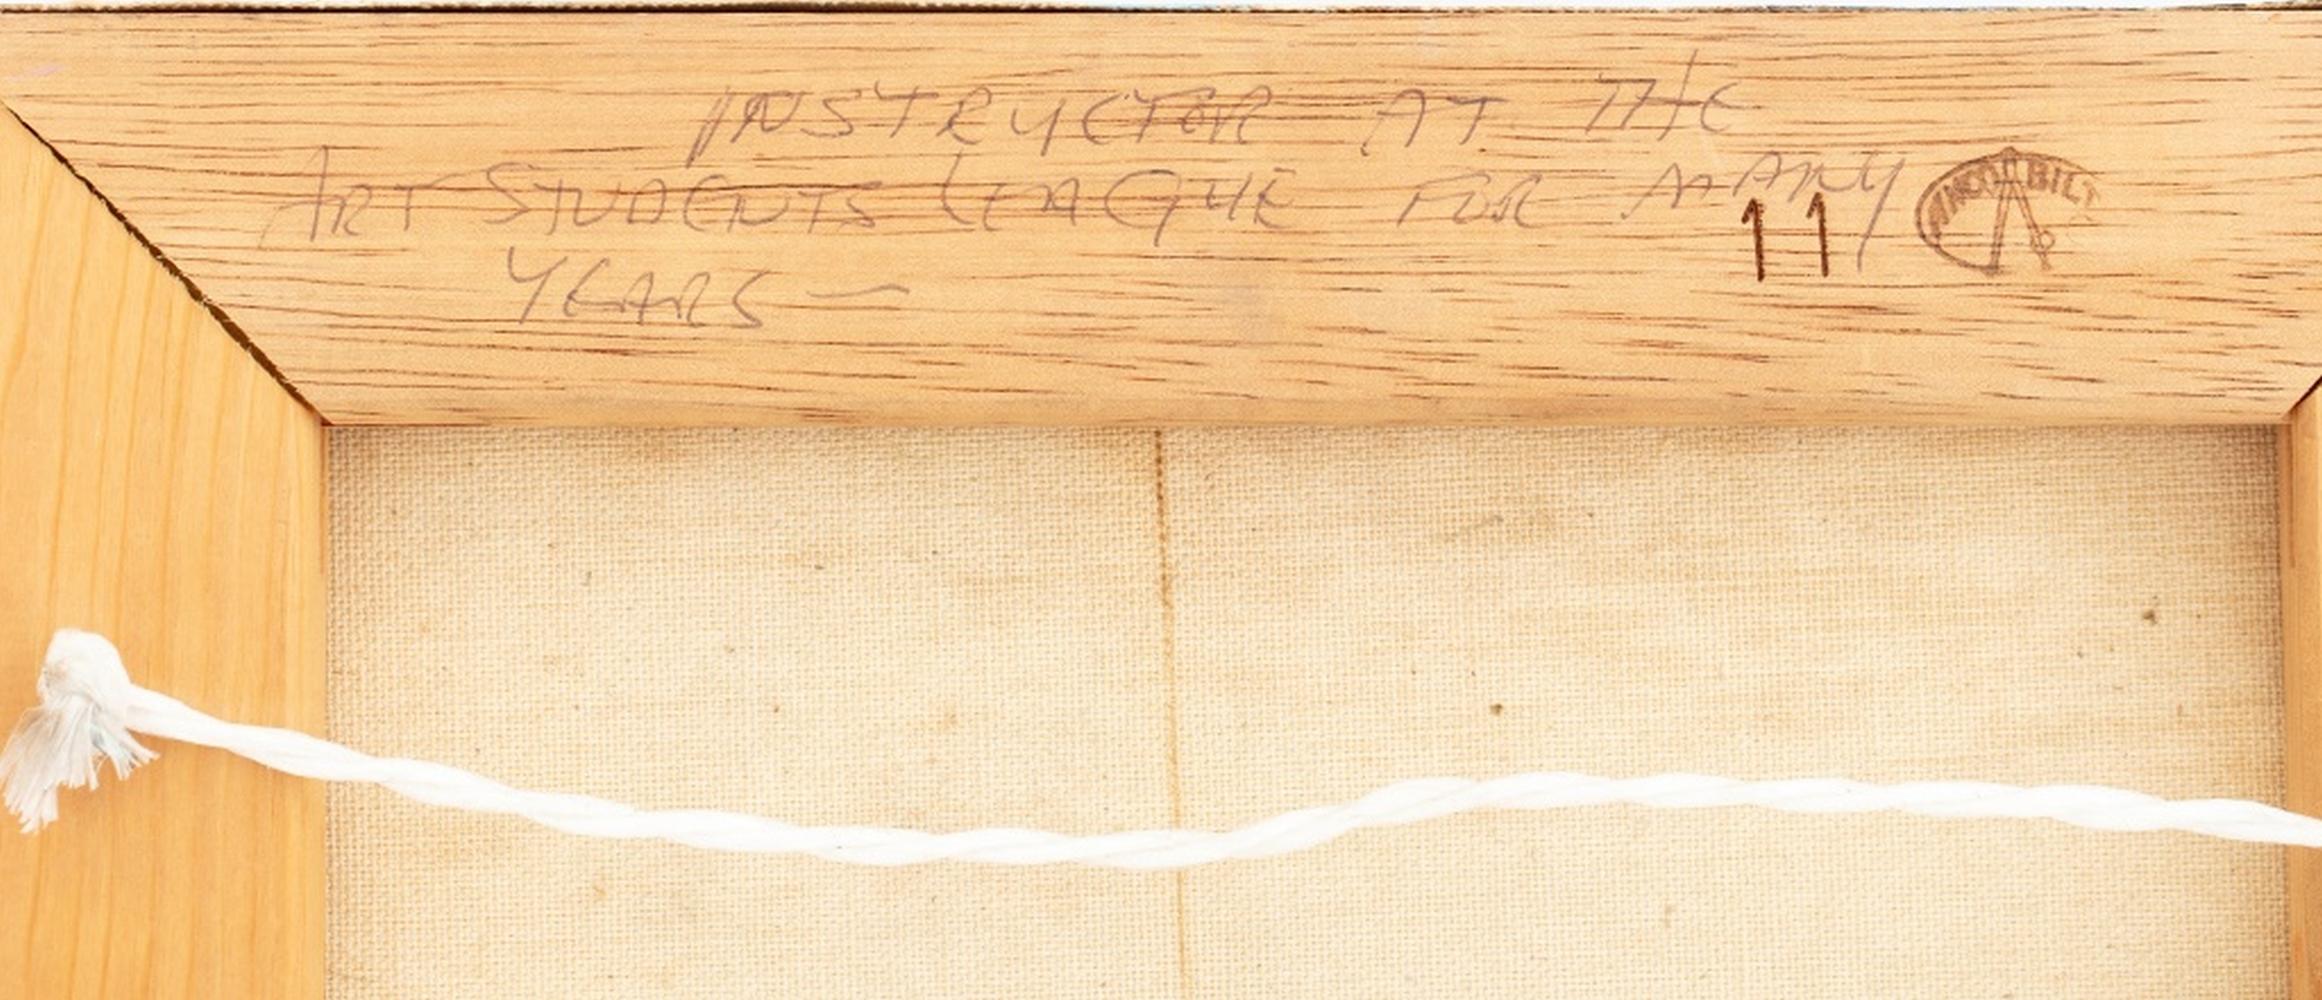 INSTRUCTOR AT THE
ART STUDENTS LEAGUE FOR MANY
YEARS —
11
BILT